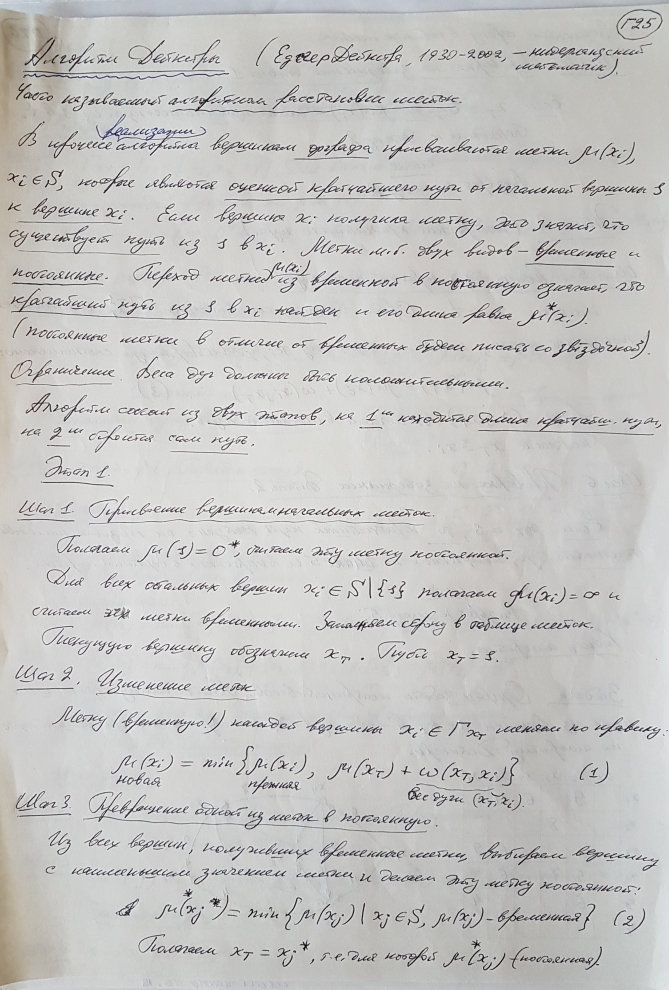 Г25
Алгоритм Дейкстры (Едсгер Дейкстра, 1930-2002, – нидерландский
математик).
Часто называемый алгоритмом расстановки меток.
реализации
В процессе алгоритма вершинам орграфа присваиваются метки μ(xi),
xi ∈ S, которые являются оценкой кратчайшего пути от начальной вершины s
к вершине xi. Если вершина xi получила метку, это значит, что
существует путь из s в xi. Метки м.б. двух видов – временные и
постоянные. Переход метки μ(xi) из временной в постоянную означает, что
кратчайший путь из s в xi найден и его длина равна μ*(xi).
(постоянные метки в отличие от временных будем писать со звёздочкой).
Ограничение. Веса дуг должны быть положительными.
Алгоритм состоит из двух этапов, на 1ом находится длина кратчайш. пути,
на 2ом строится сам путь.
Этап 1.
Шаг 1. Присвоение вершинам начальных меток.
Полагаем μ(s)=0*, считаем эту метку постоянной.
Для всех остальных вершин xi ∈ S\{s} полагаем μ(xi)=∞ и
считаем эти метки временными. Заполняем строку в таблице меток.
Текущую вершину обозначим xт. Пусть xт=s.
Шаг 2. Изменение меток
Метку (временную!) каждой вершины xi ∈ Гxт меняем по правилу:
μ(xi) = min{μ(xi), μ(xт) + ω(xт, xi)} (1)
новая прежняя вес дуги (xт, xi).
Шаг 3. Превращение одной из меток в постоянную.
Из всех вершин, получивших временные метки, выбираем вершину
с наименьшим значением метки и делаем эту метку постоянной:
μ*(xj*) = min{μ(xj) | xj ∈ S, μ(xj) – временная} (2)
Полагаем xт = xj*, т.е. для которой μ*(xj) – (постоянная).